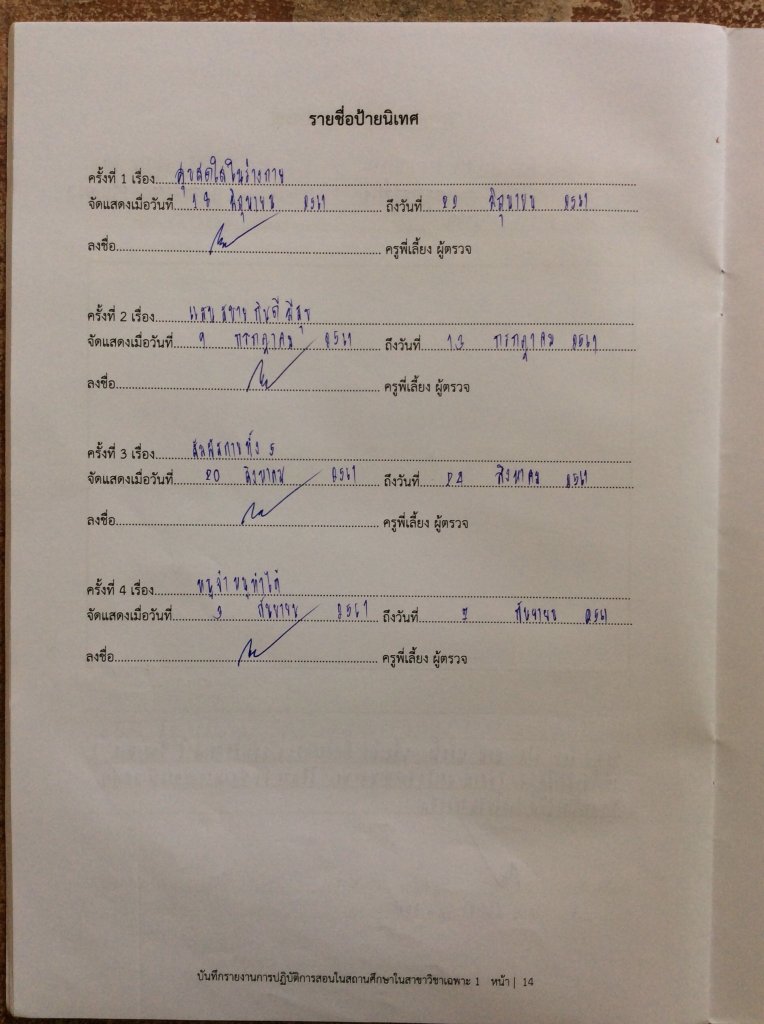 รายชื่อป้ายนิเทศ
ครั้งที่ 1 เรื่อง สุขสดใสในร่างกาย
จัดแสดงเมื่อวันที่ มิถุนายน 2561 ถึงวันที่ 22 มิถุนายน 2561
ลงชื่อ ครูพี่เลี้ยง ผู้ตรวจ
ครั้งที่ 2 เรื่อง แสนสบาย กินดี มีสุข
จัดแสดงเมื่อวันที่ 9 กรกฎาคม 2561 ถึงวันที่ 13 กรกฎาคม 2561
ลงชื่อ ครูพี่เลี้ยง ผู้ตรวจ
ครั้งที่ 3 เรื่อง สัมผัสกายทั้ง 5
จัดแสดงเมื่อวันที่ 20 สิงหาคม 2561 ถึงวันที่ 24 สิงหาคม 2561
ลงชื่อ ครูพี่เลี้ยง ผู้ตรวจ
ครั้งที่ 4 เรื่อง หนูจ๋า หนูทำได้
จัดแสดงเมื่อวันที่ 3 กันยายน 2561 ถึงวันที่ 7 กันยายน 2561
ลงชื่อ ครูพี่เลี้ยง ผู้ตรวจ
บันทึกรายงานการปฏิบัติการสอนในสถานศึกษาในสาขาวิชาเฉพาะ 1 หน้า | 14